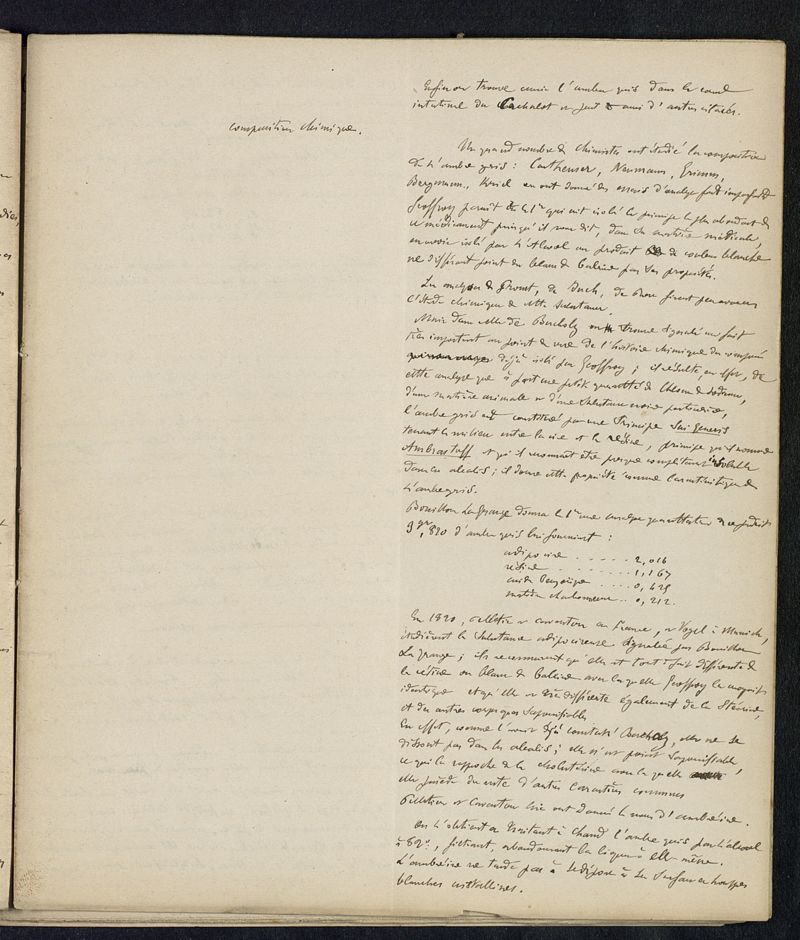 Enfin on trouve aussi l'ambre gris dans le canal
intestinal du Cachalot et peut être aussi d'autres cétacés.
composition chimique.
Un grand nombre de chimistes ont étudié la composition
de l'ambre gris : Cartheuser, Neumann, Grimm,
Bergmann, en ont donné des essais d'analyse fort imparfaits
Geoffroy parait être le 1er qui ait isolé le principe le plus abondant de
ce médicament puisqu'il nous dit, dans sa matière médicale,
en avoir isolé par l'Alcool un produit de couleur blanche
ne différant point du blanc de baleine par ses propriétés.
Les analyses de Proust, de Juch, de Rose firent peu avancer
l'étude chimique de cette substance.
Mais dans celle de Bucholz on trouve signalé un fait
très important au point de vue de l'histoire chimique du composé
déjà isolé par Geoffroy ; il résulte, en effet, de
cette analyse que à part une petite quantité de Chlorure de Sodium,
d'une matière animale et d'une substance noire particulière,
l'ambre gris est constitué par un Principe Sui Generis
tenant le milieu entre la cire et la résine, principe qu'il nomme
Ambrastoff et qu'il reconnait être presque complètement insoluble
dans les alcalis ; il donne cette propriété comme caractéristique de
l'ambre gris.
Bouillon Lagrange donna le 1er une analyse quantitative de ce produit
3gr,820 d'ambre gris lui fournirent :
adipocire ...... 2,016
résine ........ 1,167
acide benzoïque .... 0,425
matière charbonneuse .. 0,212.
En 1820, Pelletier et Caventou en France, et Vogel à Munich,
étudièrent la substance adipocireuse signalée par Bouillon
Lagrange ; ils reconnurent qu'elle est tout à fait différente de
la cétine ou blanc de baleine avec laquelle Geoffroy la croyait
identique et qu'elle est très différente également de la Stéarine,
et des autres corps gras saponifiables
En effet, comme l'avait déjà constaté Bucholz, elle ne se
dissout pas dans les alcalis ; elle n'est point saponifiable,
ce qui la rapproche de la cholestérine avec laquelle
elle possède du reste d'autres caractères communs
Pelletier et Caventou lui ont donné le nom d'ambréine.
On l'obtient en traitant à chaud l'ambre gris par l'alcool
à 82°, filtrant, abandonnant la liqueur à elle-même.
L'ambréine ne tarde pas à se déposer à sa surface en houppes
blanches cristallines.